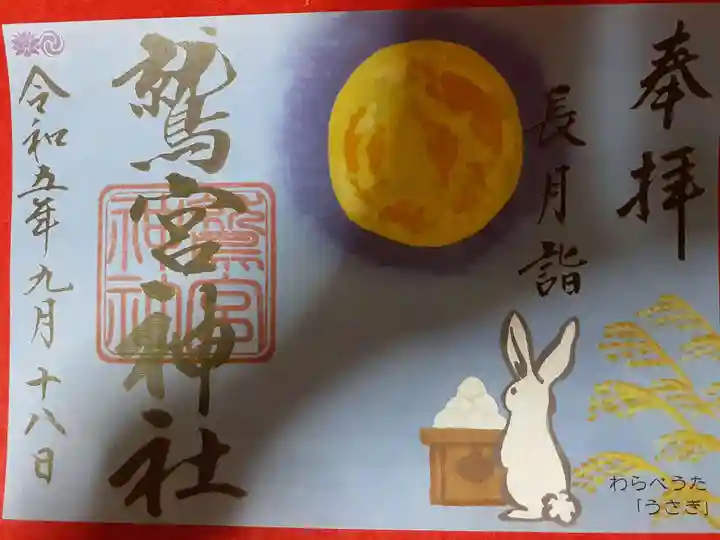 奉拝
長月詣
鷲宮神社
鷲宮
神社
令和五年九月十八日
わらべうた
「うさぎ」